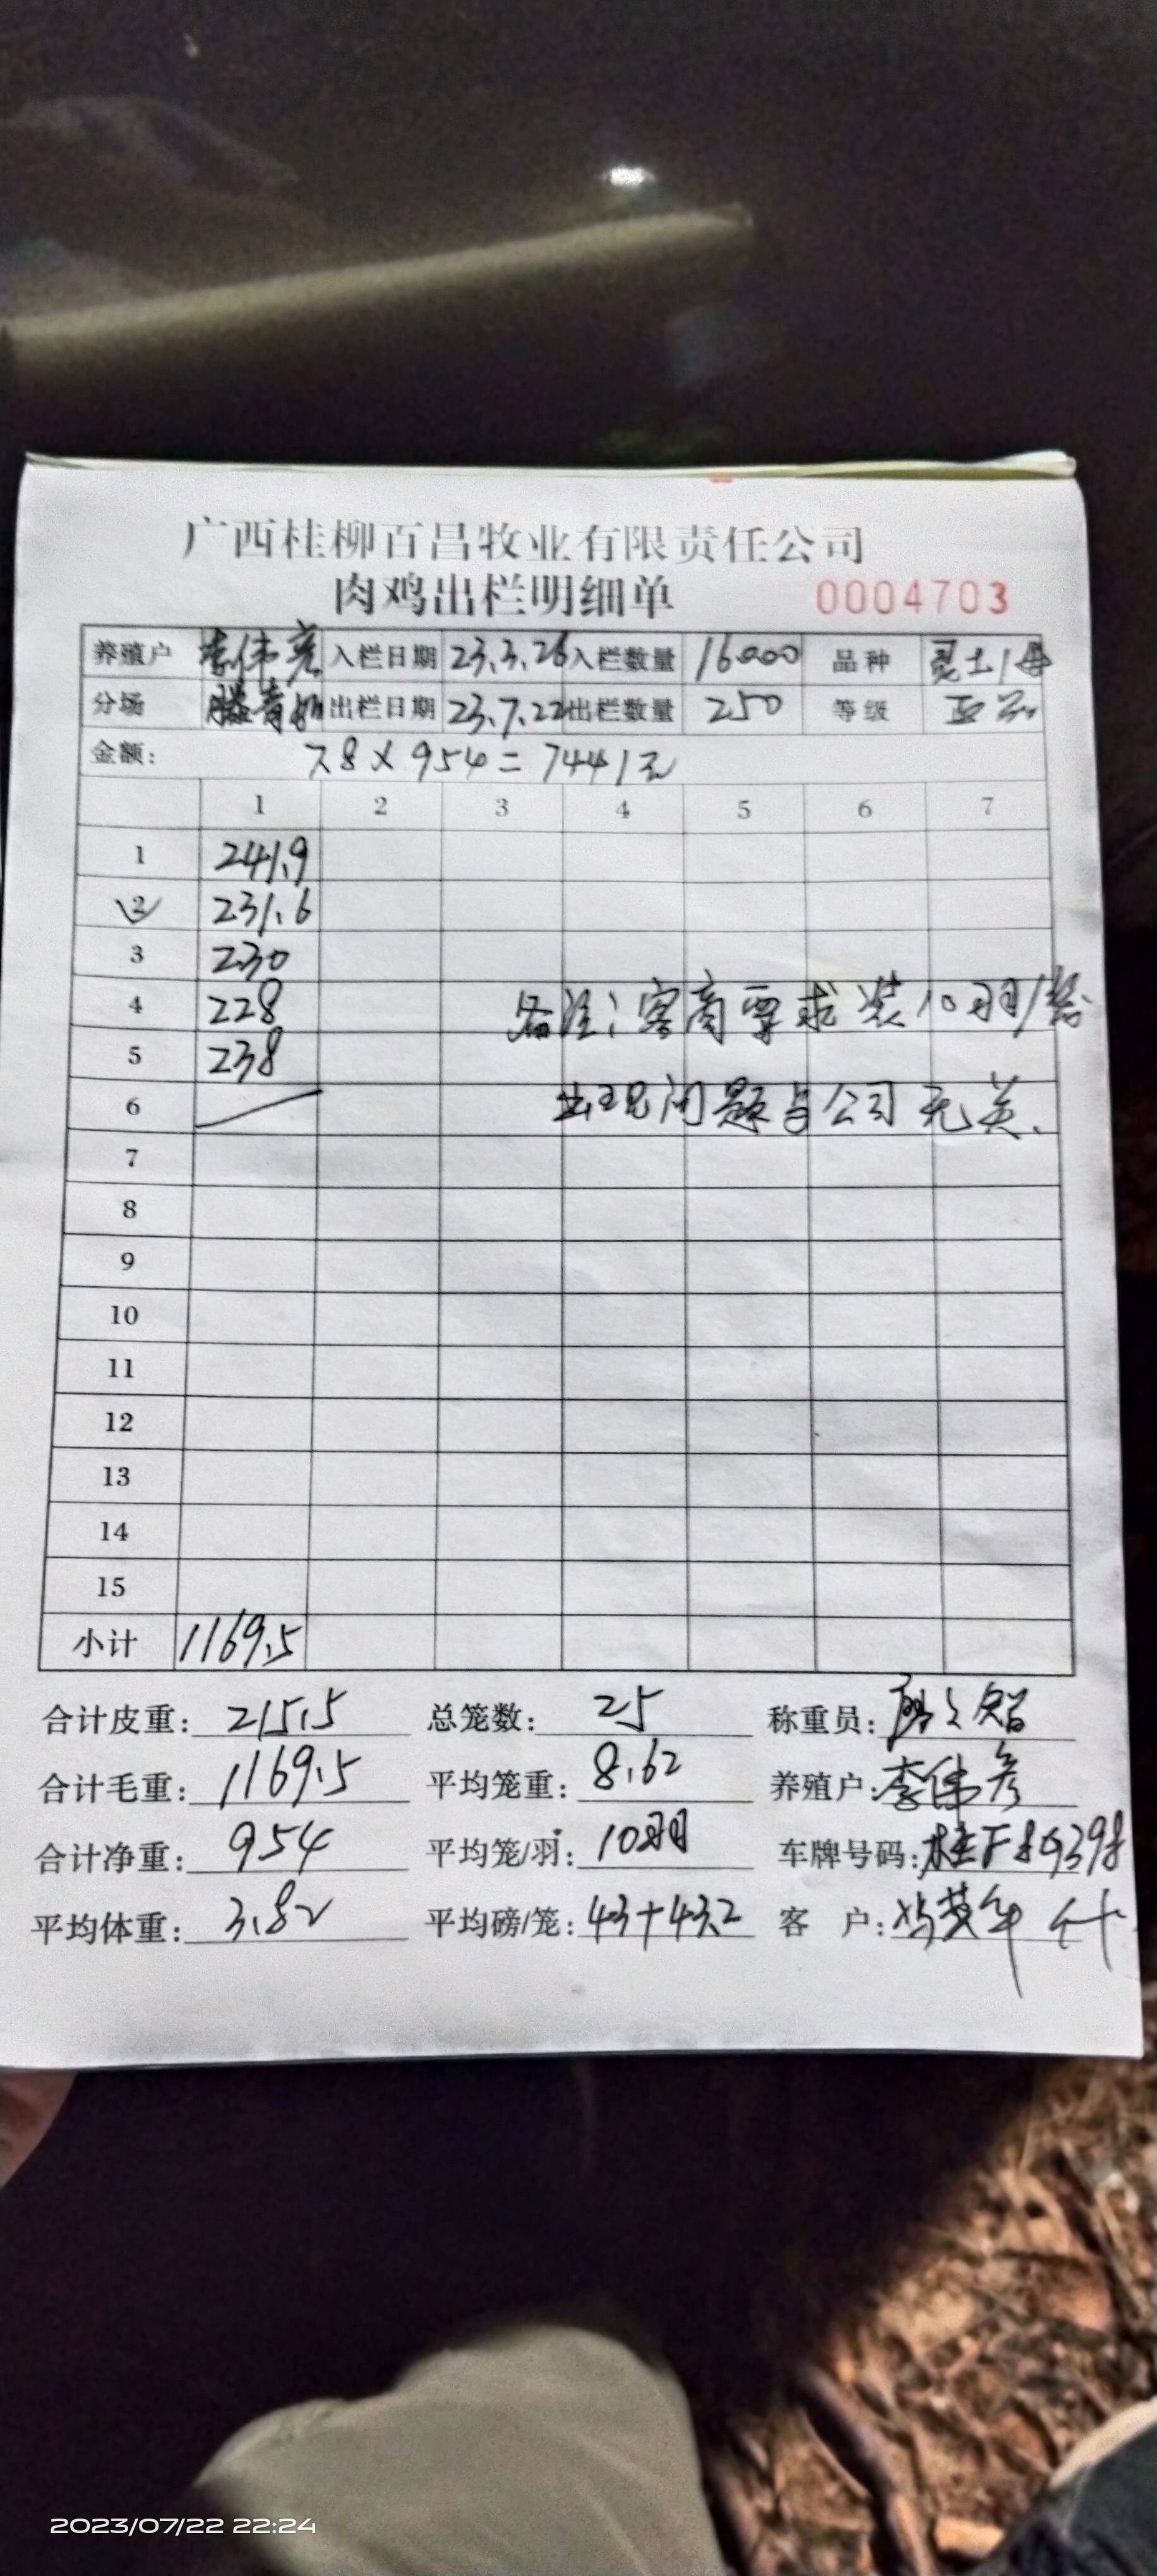 广西桂柳百昌牧业有限责任公司
肉鸡出栏明细单 0004703
养殖户 李伟彦 入栏日期 23.3.26 入栏数量 16000 品种
分场 出栏日期 23.7.22 出栏数量 250 等级
金额: 7.8×954=7441元
1 2 3 4 5 6 7
1 241.9
2 231.6
3 230
4 228 备注:客商要求装10羽/笼
5 238
6 出现问题与公司无关.
7
8
9
10
11
12
13
14
15
小计 1169.5
合计皮重: 215.5 总笼数: 25 称重员:
合计毛重: 1169.5 平均笼重: 8.62 养殖户: 李伟彦
合计净重: 954 平均笼/羽: 10羽 车牌号码:
平均体重: 3.82 平均磅/笼: 43+43.2 客 户:
2023/07/22 22:24